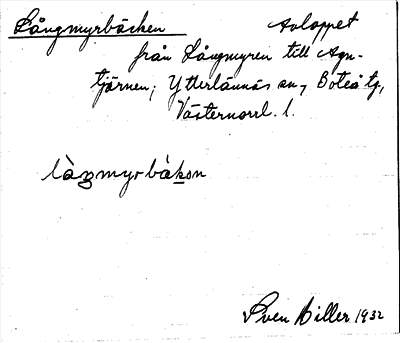 Långmyrbäcken Avloppet
från Långmyren till Agn-
tjärnen, Ytterlännäs sn, Boteå tg,
Västernorrl. l.
làŋmyrbàkon
Sven Hiller 1932